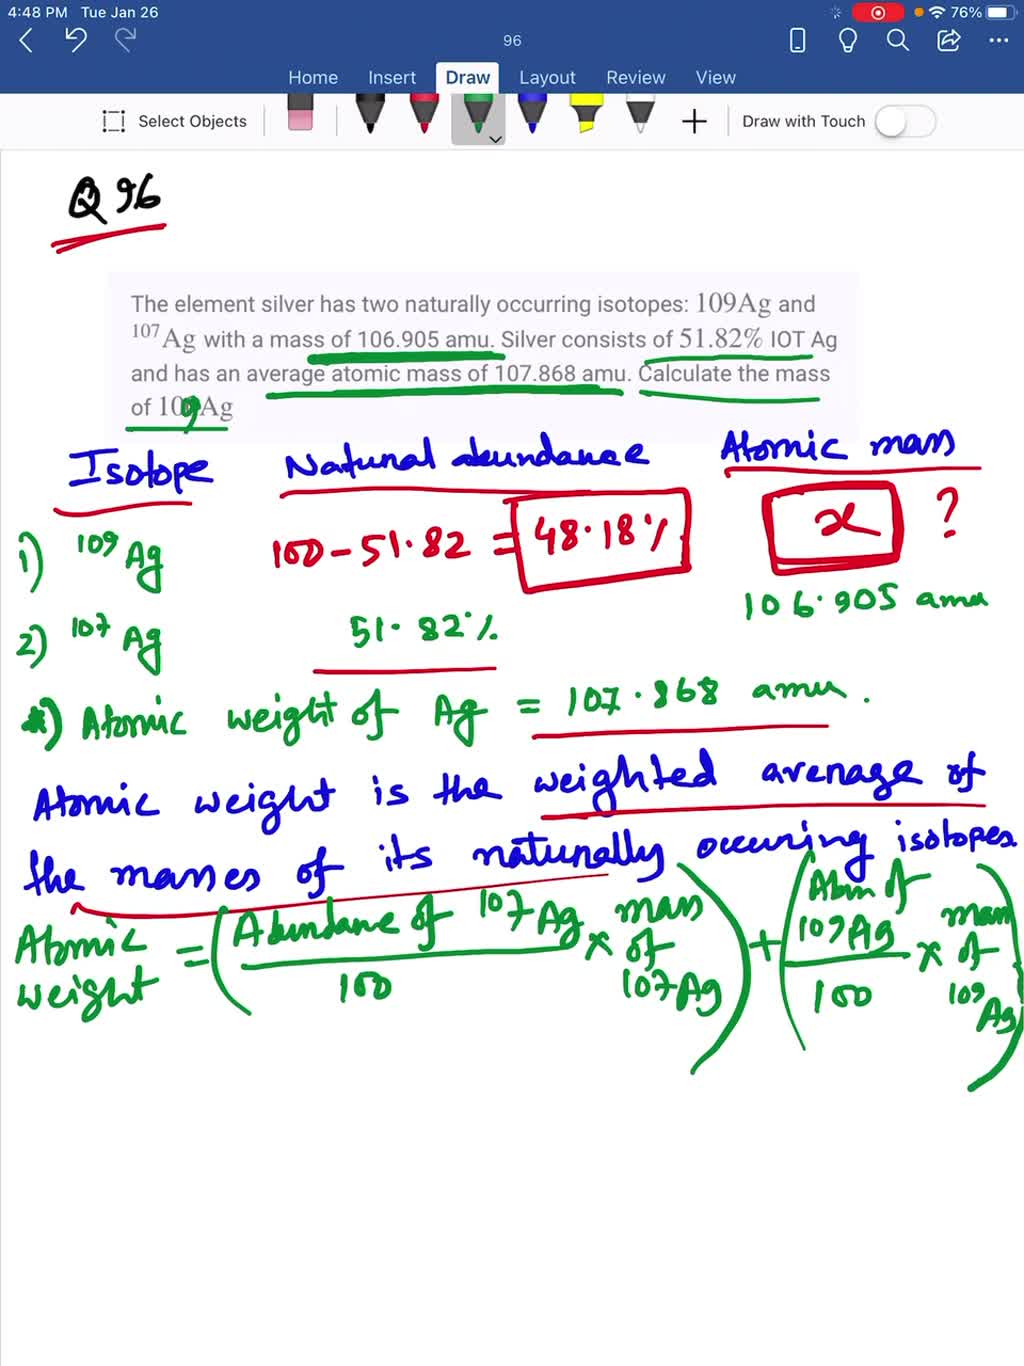 4:48 PM Tue Jan 26
76%
96
Home Insert Draw Layout Review View
Select Objects
Draw with Touch
Q 96
The element silver has two naturally occurring isotopes: 109Ag and
107Ag with a mass of 106.905 amu. Silver consists of 51.82% IOT Ag
and has an average atomic mass of 107.868 amu. Calculate the mass
of 109Ag
Isotope Natural abundance Atomic mass
1) 109Ag 100 - 51.82 = 48.18% x ?
2) 107Ag 51.82% 106.905 amu
*) Atomic weight of Ag = 107.868 amu.
Atomic weight is the weighted average of
the masses of its naturally occuring isotopes.
Atomic weight = (Abundance of 107Ag / 100 × mass of 107Ag) + (Abun of 109Ag / 100 × mass of 109Ag)